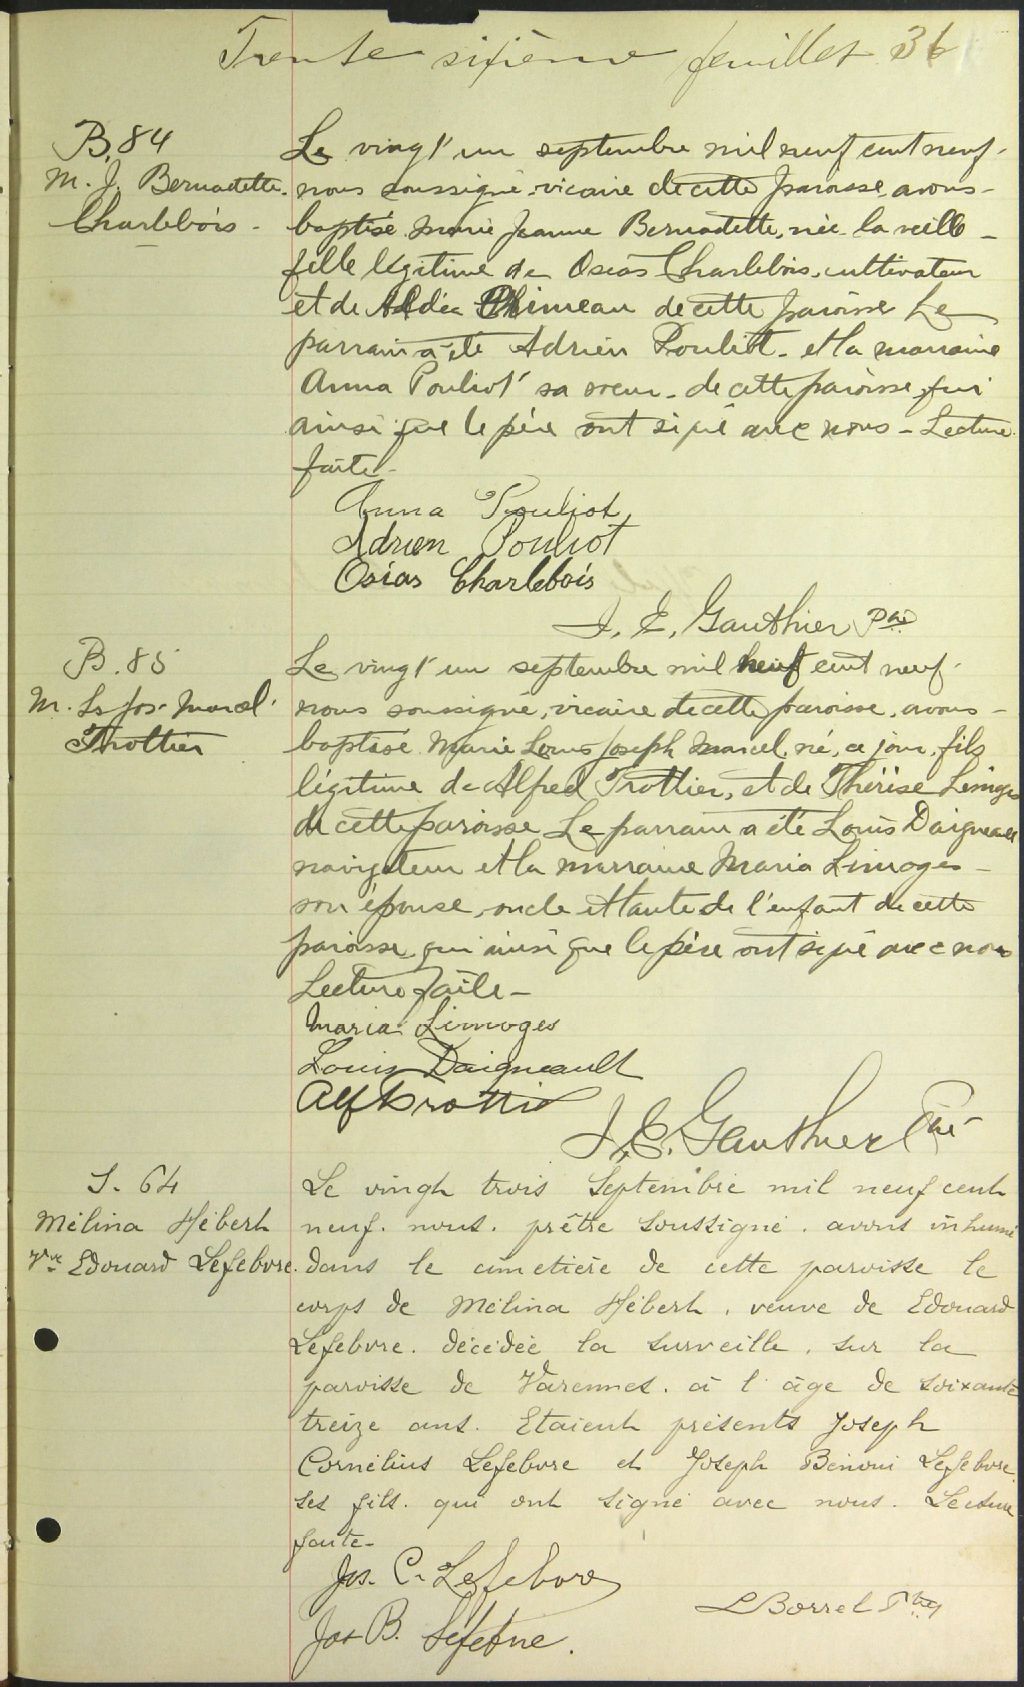 Trente sixième feuillet 36
B. 84
M. J. Bernadette
Charlebois -
Le vingt un septembre mil neuf cent neuf.
nous soussigné, vicaire de cette paroisse, avons
baptisé Marie Jeanne Bernadette, née la veille
fille légitime de Osias Charlebois, cultivateur
et de de cette paroisse Le
parrain a été Adrien Pouliot - et la marraine
Anna Pouliot sa soeur - de cette paroisse, qui
ainsi que le père ont signé avec nous - Lecture
faite -
Anna Pouliot
Adrien Pouliot
Osias Charlebois
J. E. Gauthier Ptre
B. 85
M. Ls Jos. Marcel
Trottier
Le vingt un septembre mil neuf cent neuf.
nous soussigné, vicaire de cette paroisse, avons -
baptisé Marie Louis Joseph Marcel, né, ce jour, fils
légitime de Alfred Trottier, et de Thérèse Limoges
de cette paroisse Le parrain a été Louis Daigneault
navigateur et la marraine Maria Limoges -
son épouse, oncle et tante de l'enfant de cette
paroisse qui ainsi que le père ont signé avec nous
Lecture faite -
Maria Limoges
Louis Daigneault
Alf Trottier
J. E. Gauthier Ptre
S. 64
Mélina Hébert
Vve Edouard Lefebvre.
Le vingt trois Septembre mil neuf cent
neuf. nous. prêtre soussigné. avons inhumé
dans le cimetière de cette paroisse le
corps de Mélina Hébert, veuve de Edouard
Lefebvre. décédée la surveille, sur la
paroisse de Varennes. à l'âge de soixante
treize ans. Etaient présents Joseph
Cornélius Lefebvre et Joseph Bénoni Lefebvre
ses fils. qui ont signé avec nous. Lecture
faite -
Jos. C. Lefebvre
Jos B. Lefebvre.
L Borrel Ptre